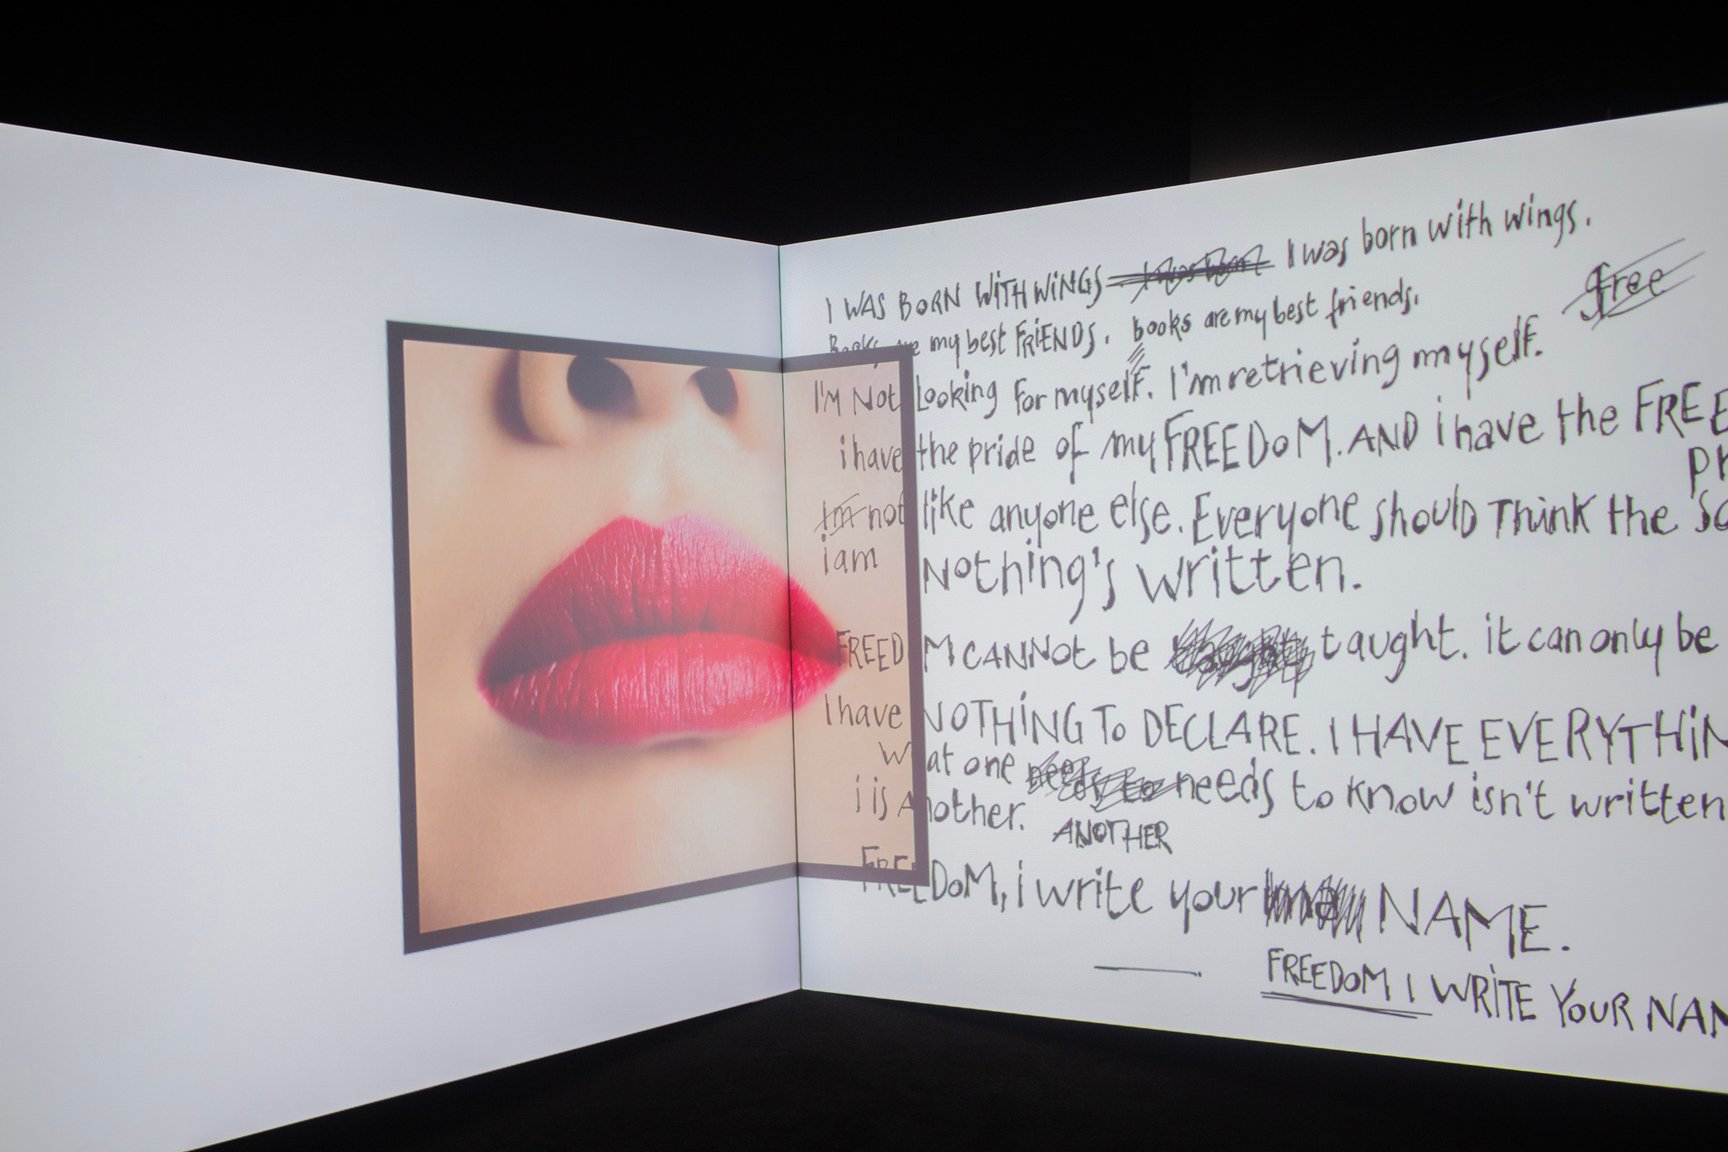 I WAS BORN WITH WINGS I was born I was born with wings.
free
Books are my best FRiENDS. books are my best friends.
I'M Not Looking for myself. I'm retrieving myself.
i have the pride of my FREEDoM. AND i have the FREE
PR
I'm not like anyone else. Everyone should Think the
i am Nothing's written.
FREED M CANNot be taught. it can only be
I have NOTHING To DECLARE. I HAVE EVERYTHiN
W at one needs to needs to know isn't written
i is Another. ANOTHER
FREEDoM, i write your NAME.
FREEDoM I WRiTE YoUR NAM